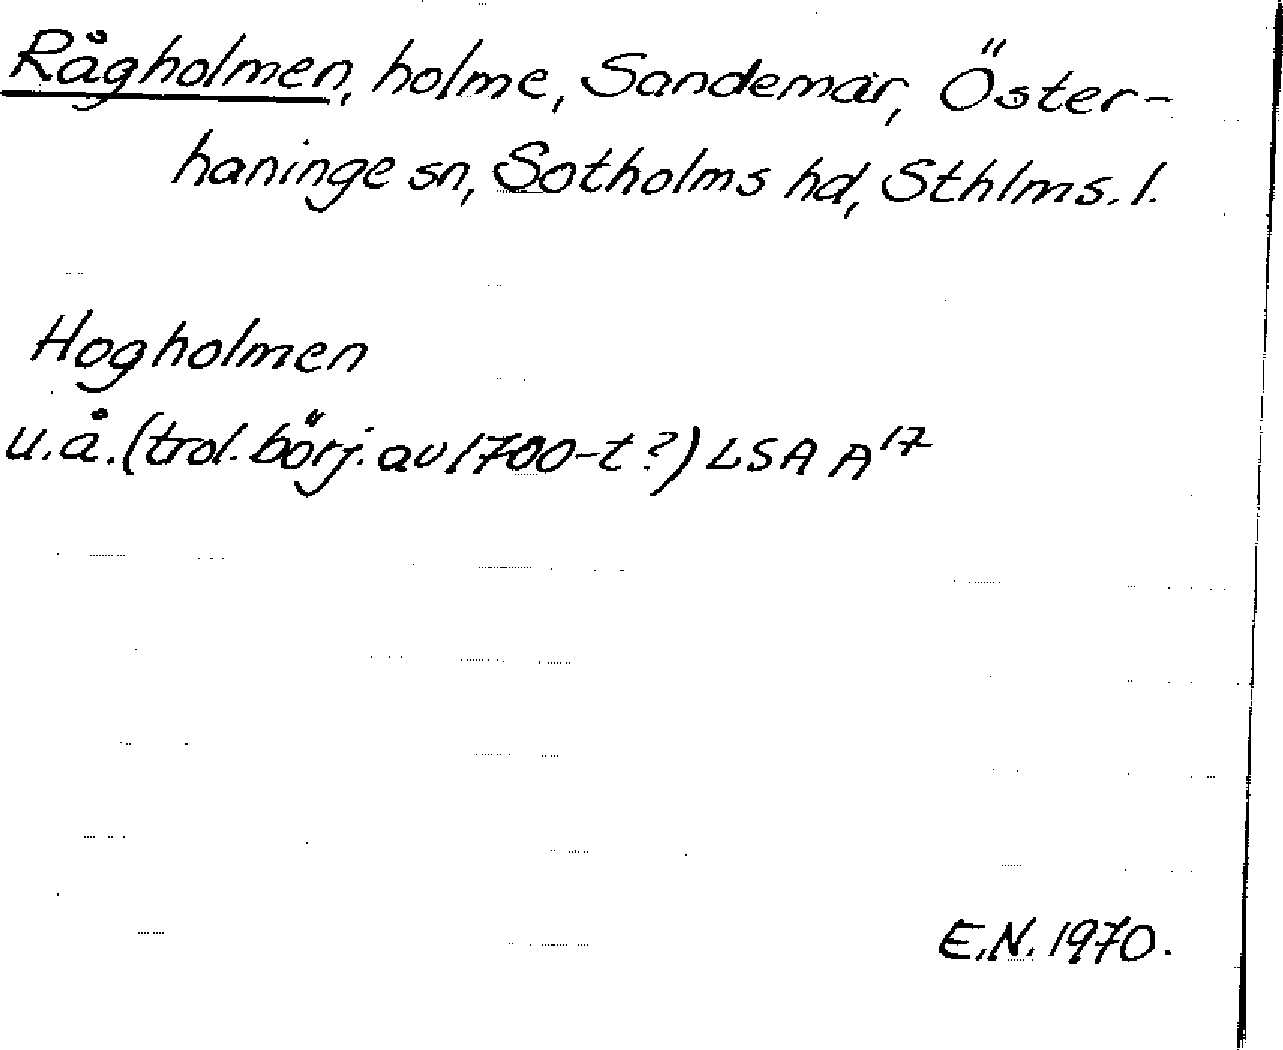 Rågholmen, holme, Sandemar, Öster-
haninge sn, Sotholms hd, Sthlms. l.
Hogholmen
u.å. (trol. börj. av 1700-t ?) LSA A¹⁷
E.N. 1970.